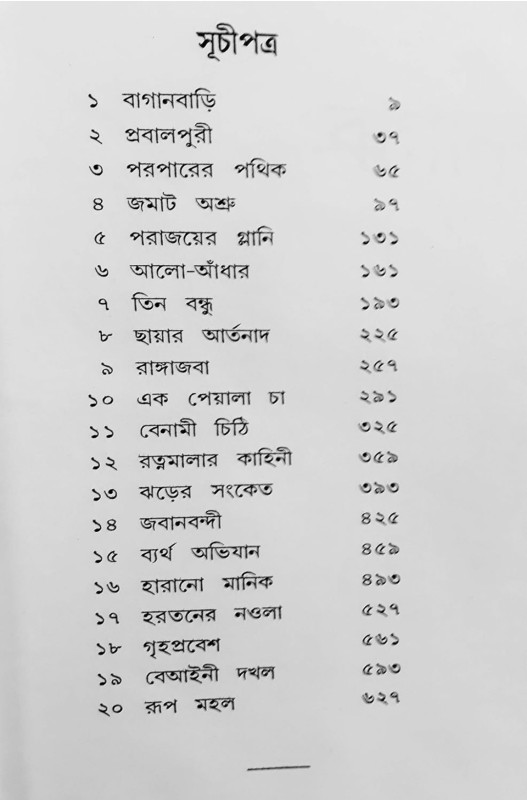 সূচীপত্র
১ বাগানবাড়ি ৯
২ প্রবালপুরী ৩৭
৩ পরপারের পথিক ৬৫
৪ জমাট অশ্রু ৯৭
৫ পরাজয়ের গ্লানি ১৩১
৬ আলো-আঁধার ১৬১
৭ তিন বন্ধু ১৯৩
৮ ছায়ার আর্তনাদ ২২৫
৯ রাঙ্গাজবা ২৫৭
১০ এক পেয়ালা চা ২৯১
১১ বেনামী চিঠি ৩২৫
১২ রত্নমালার কাহিনী ৩৫৯
১৩ ঝড়ের সংকেত ৩৯৩
১৪ জবানবন্দী ৪২৫
১৫ ব্যর্থ অভিযান ৪৫৯
১৬ হারানো মানিক ৪৯৩
১৭ হরতনের নওলা ৫২৭
১৮ গৃহপ্রবেশ ৫৬১
১৯ বেআইনী দখল ৫৯৩
২০ রূপ মহল ৬২৭